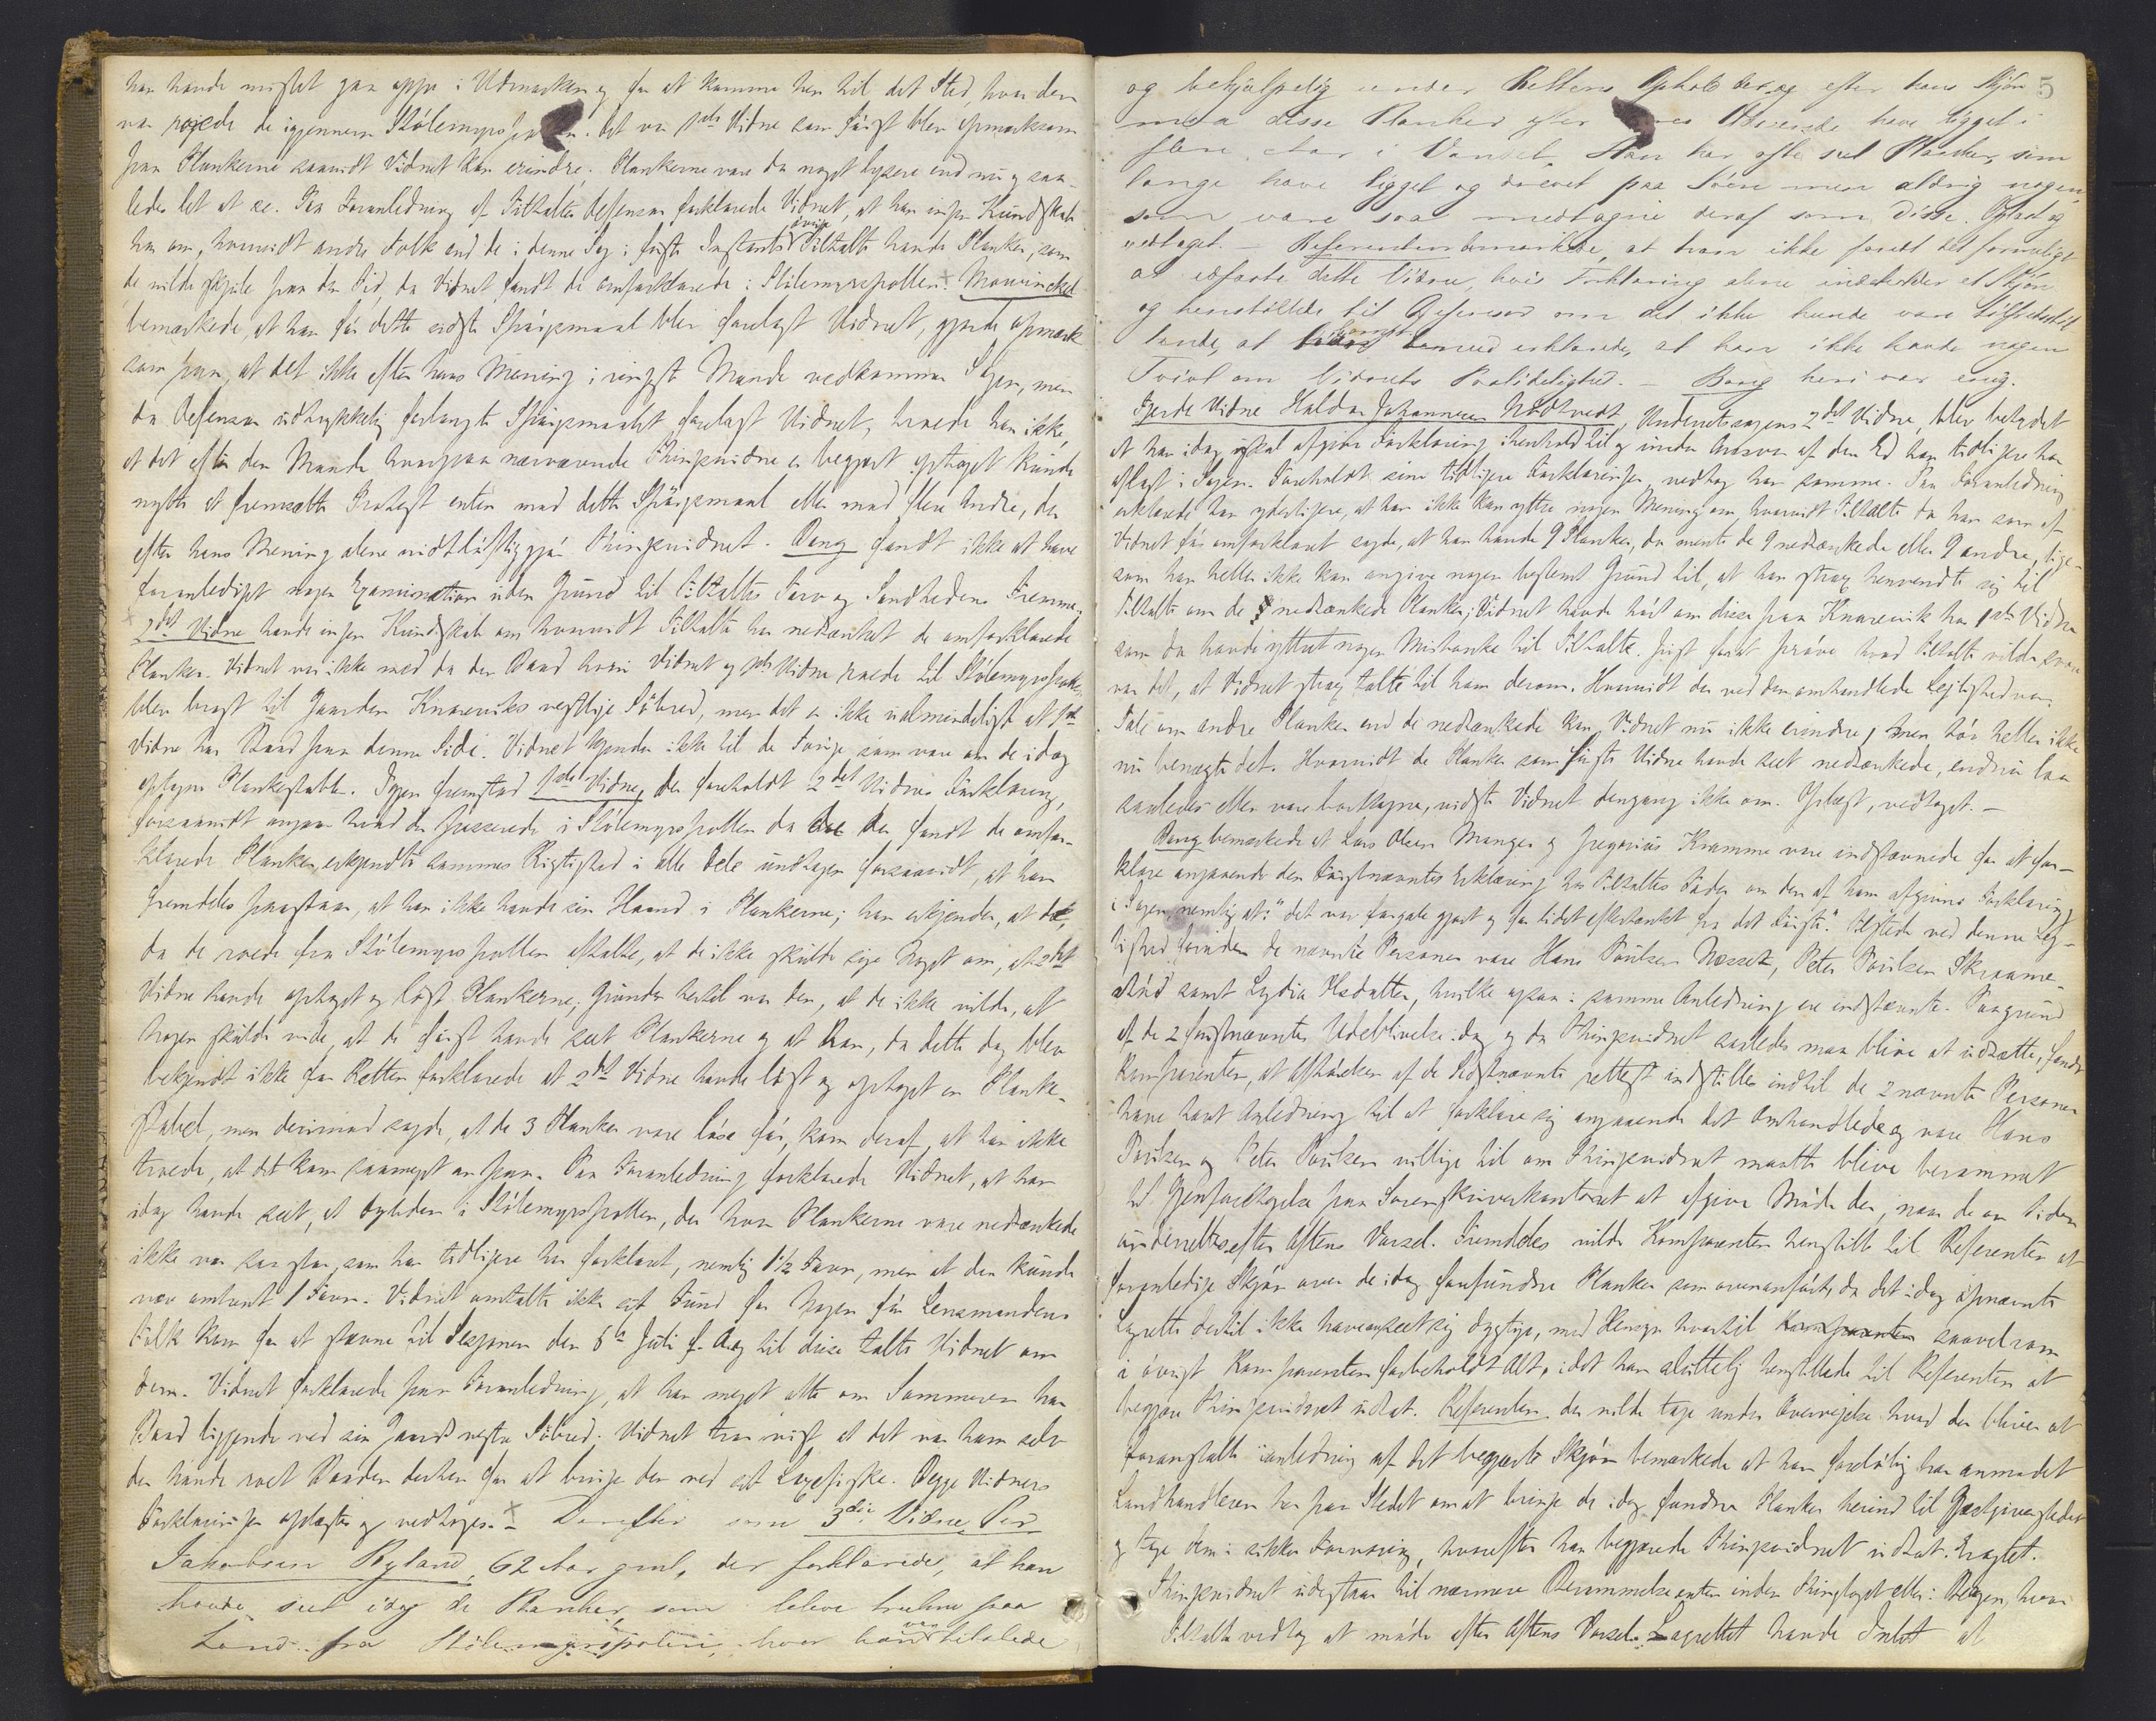 han havde mistet gaa oppe i Udmarken og for at komme hen til det Sted, hvor den
var roede de igjennem Stölemyrspollen. Det var 1ste Vidne som först blev opmærksom
paa Plankerne saavidt Vidnet kan erindre. Plankerne vare da noget lysere end nu og saa-
ledes let at se. Paa Foranledning af Tiltaltes Defensor forklarede Vidnet, at han ingen Kundskab
har om, hvorvidt andre Folk end de i denne Sag i förste Instants övrige Tiltalte havde Planker, som
de vilde skjule paa den Tid, da Vidnet fandt de omforklarede i Stölemyrspollen. + Mowinckel
bemærkede, at han för dette sidste Spörgsmaal blev forelagt Vidnet, gjorde opmærk-
som paa, at det ikke efter hans Mening i ringeste Maade vedkommer Sagen, men
da Defensor udtrykkelig forlangte Spörgsmaalet forelagt Vidnet, troede han ikke,
at det efter den Maade hvorpaa nærværende Thingsvidne er begjært optaget kunde
nytte at fremsætte Protest enten mod dette Spörgsmaal eller mod flere Andre, der
efter hans Mening alene vidtlöftiggjör Thingsvidnet. Bang fandt ikke at have
foranlediget nogen Examination uden Grund til Tiltaltes Tarv og Sandhedens Fremme.
+ 2det Vidne havde ingen Kundskab om hvorvidt Tiltalte har nedsænket de omforklarede
Planker. Vidnet var ikke med da den Baad hvori Vidnet og 1ste Vidne roede til Stölemyrspollen
blev bragt til Gaarden Knarviks vestlige Söbred, men det er ikke ualmindeligt at 1ste
Vidne har Baad paa denne Side. Vidnet kjender ikke til de Touge, som vare om de idag
optagne Plankestabler. Igjen fremstod 1ste Vidne, der foreholdt 2det Vidnes Forklaring,
forsaavidt angaar hvad der passerede i Stölemyrspollen da de der fandt de omfor-
klarede Planker, erkjendte sammes Rigtighed i alle Dele undtagen forsaavidt, at han
fremdeles paastaar, at han ikke havde sin Haand i Plankerne; han erkjender, at de,
da de roede fra Stölemyrspollen aftalte, at de ikke skulde sige Noget om, at 2det
Vidne havde optaget og löst Plankerne; Grunden hertil var den, at de ikke vilde, at
Nogen skulde vide, at de först havde seet Plankerne og at han, da dette dog blev
bekjendt ikke for Retten forklarede at 2det Vidne havde löst og optaget en Planke-
stabel, men derimod sagde, at de 3 Planker vare löse för, kom deraf, at han ikke
troede, at det kom saameget an paa. Paa Foranledning forklarede Vidnet, at han
idag havde seet, at Dybden i Stölemyrspollen, der hvor Plankerne vare nedsænkede
ikke var saa stor, som han tidligere har forklaret, nemlig 1½ Favn, men at den kunde
være omtrent 1 Favn. Vidnet omtalte ikke sit Fund for Nogen för Lensmandens
Folk kom for at stævne til Sessionen den 6te Juli f. A. og til disse talte Vidnet om
dem. Vidnet forklarede paa Foranledning, at han meget ofte om Sommeren har
Baad liggende ved sin Gaards vestre Söbred. Vidnet tror vist at det var ham selv
der havde roet Baaden derhen for at bruge den ved sit Laxefiske. Begge Vidners
Forklaringer oplæste og vedtagne. + Derefter som 3die Vidne Per
Jakobsen Ryland, 62 Aar gml, der forklarede, at han
havde seet idag de Planker, som bleve trukne paa
Land fra Stölemyrspollen, hvor han var tilstede
og behjælpelig under Rettens Ophold der, og efter hans Skjön
maa disse Planker efter Udseende have ligget i
flere Aar i Vandet. Han har ofte seet Planker, som
længe have ligget og drevet paa Söen men aldrig nogen,
som vare saa medtagne deraf som disse. Oplæst og
vedtaget. — Referenten bemærkede, at han ikke fandt det fornödigt
at edfæste dette Vidne, hvis Forklaring alene indeholder et Skjön
og henstillede til Defensor om det ikke kunde være tilfredsstil-
lende, at erklærede, at han ikke havde nogen
Tvivl om Vidnets Paalidelighed. — Bang heri var enig.
Fjerde Vidne Haldor Johannesen Nödtvedt, Underretssagens 2det Vidne, blev betydet
at han idag skal afgive Forklaring i henhold til og under Ansvar af den Ed han tidligere har
aflagt i Sagen. Foreholdt sine tidligere Forklaringer, vedtog han samme. Paa Foranledning
erklærede han yderligere, at han ikke kan yttre nogen Mening om, hvorvidt Tiltalte da han som af
Vidnet för omforklaret sagde, at han havde 9 Planker, da mente de 9 nedsænkede eller 9 andre, lige-
som han heller ikke kan angive nogen bestemt Grund til, at han strax henvendte sig til
Tiltalte om de nedsænkede Planker; Vidnet havde hört om disse paa Knarvik hos 1ste Vidne
som da havde yttret nogen Mistanke til Tiltalte. Just for at pröve hvad Tiltalte vilde svare
var det, at Vidnet strax talte til ham derom. Hvorvidt der ved den omhandlede Leilighed var
Tale om andre Planker end de nedsænkede kan Vidnet nu ikke erindre, men tör heller ikke
nu benægte det. Hvorvidt de Planker som förste Vidne havde seet nedsænkede, endnu laa
saaledes eller vare borttagne, vidste Vidnet dengang ikke om. Oplæst, vedtaget. —
Bang bemærkede at Lars Olsen Manger og Gregorius Kramme vare indstævnede for at for-
klare angaaende den Förstnævntes Erklæring hos Tiltaltes Fader om den af ham afgivne Forklaring
i Sagen, nemlig at: "det var forgale gjort og for lidet eftertænkt fra det Förste". Tilstede ved denne Lej-
lighed foruden de nævnte Personer vare Hans Poulsen Næsset, Peter Poulsen Skraame-
stöd samt Lydia Olsdatter, hvilke ogsaa i samme Anledning ere indstævnte. Paagrund
af de 2 förstnævntes Udeblivelse idag og da Thingsvidnet saaledes maa blive at udsætte, fandt
Komparenten, at Afhörelsen af de Sidstnævnte rettest indstilles indtil de 2 nævnte Personer
have havt Anledning til at forklare sig angaaende det Omhandlede og vare Hans
Poulsen og Peter Poulsen villige til om Thingsvidnet maatte blive berammet
til Gjenforetagelse paa Sorenskriverkontoret at afgive Möde der, naar de om Tiden
underrettes efter Aftens Varsel. Fremdeles vilde Komparenten henstille til Referenten at
foranledige Skjön over de idag forefundne Planker som ovenanfört, da det idag opnævnte
Lagrette dertil ikke have anseet sig dygtige, med Hensyn hvortil saavelsom
i övrigt Komparenten forbeholdt Alt, idet han sluttelig henstillede til Referenten at
begjære Thingsvidnet udsat. Referenten, der vilde tage under Overveielse hvad der bliver at
foranstalte i Anledning af det begjærte Skjön bemærkede at han forelöbig har anmodet
Landhandleren her paa Stedet om at bringe de idag fundne Planker herind til Gjæstgiverstedet
og tage dem i sikker Forvaring, hvorefter han begjærede Thingsvidnet udsat. Eragtet.
Thingsvidnet udestaar til nærmere Berammelse enten inden Thinglaget eller i Bergen, hvor
Tiltalte vedtog at möde efter Aftens Varsel. Lagrettet havde Intet at
5